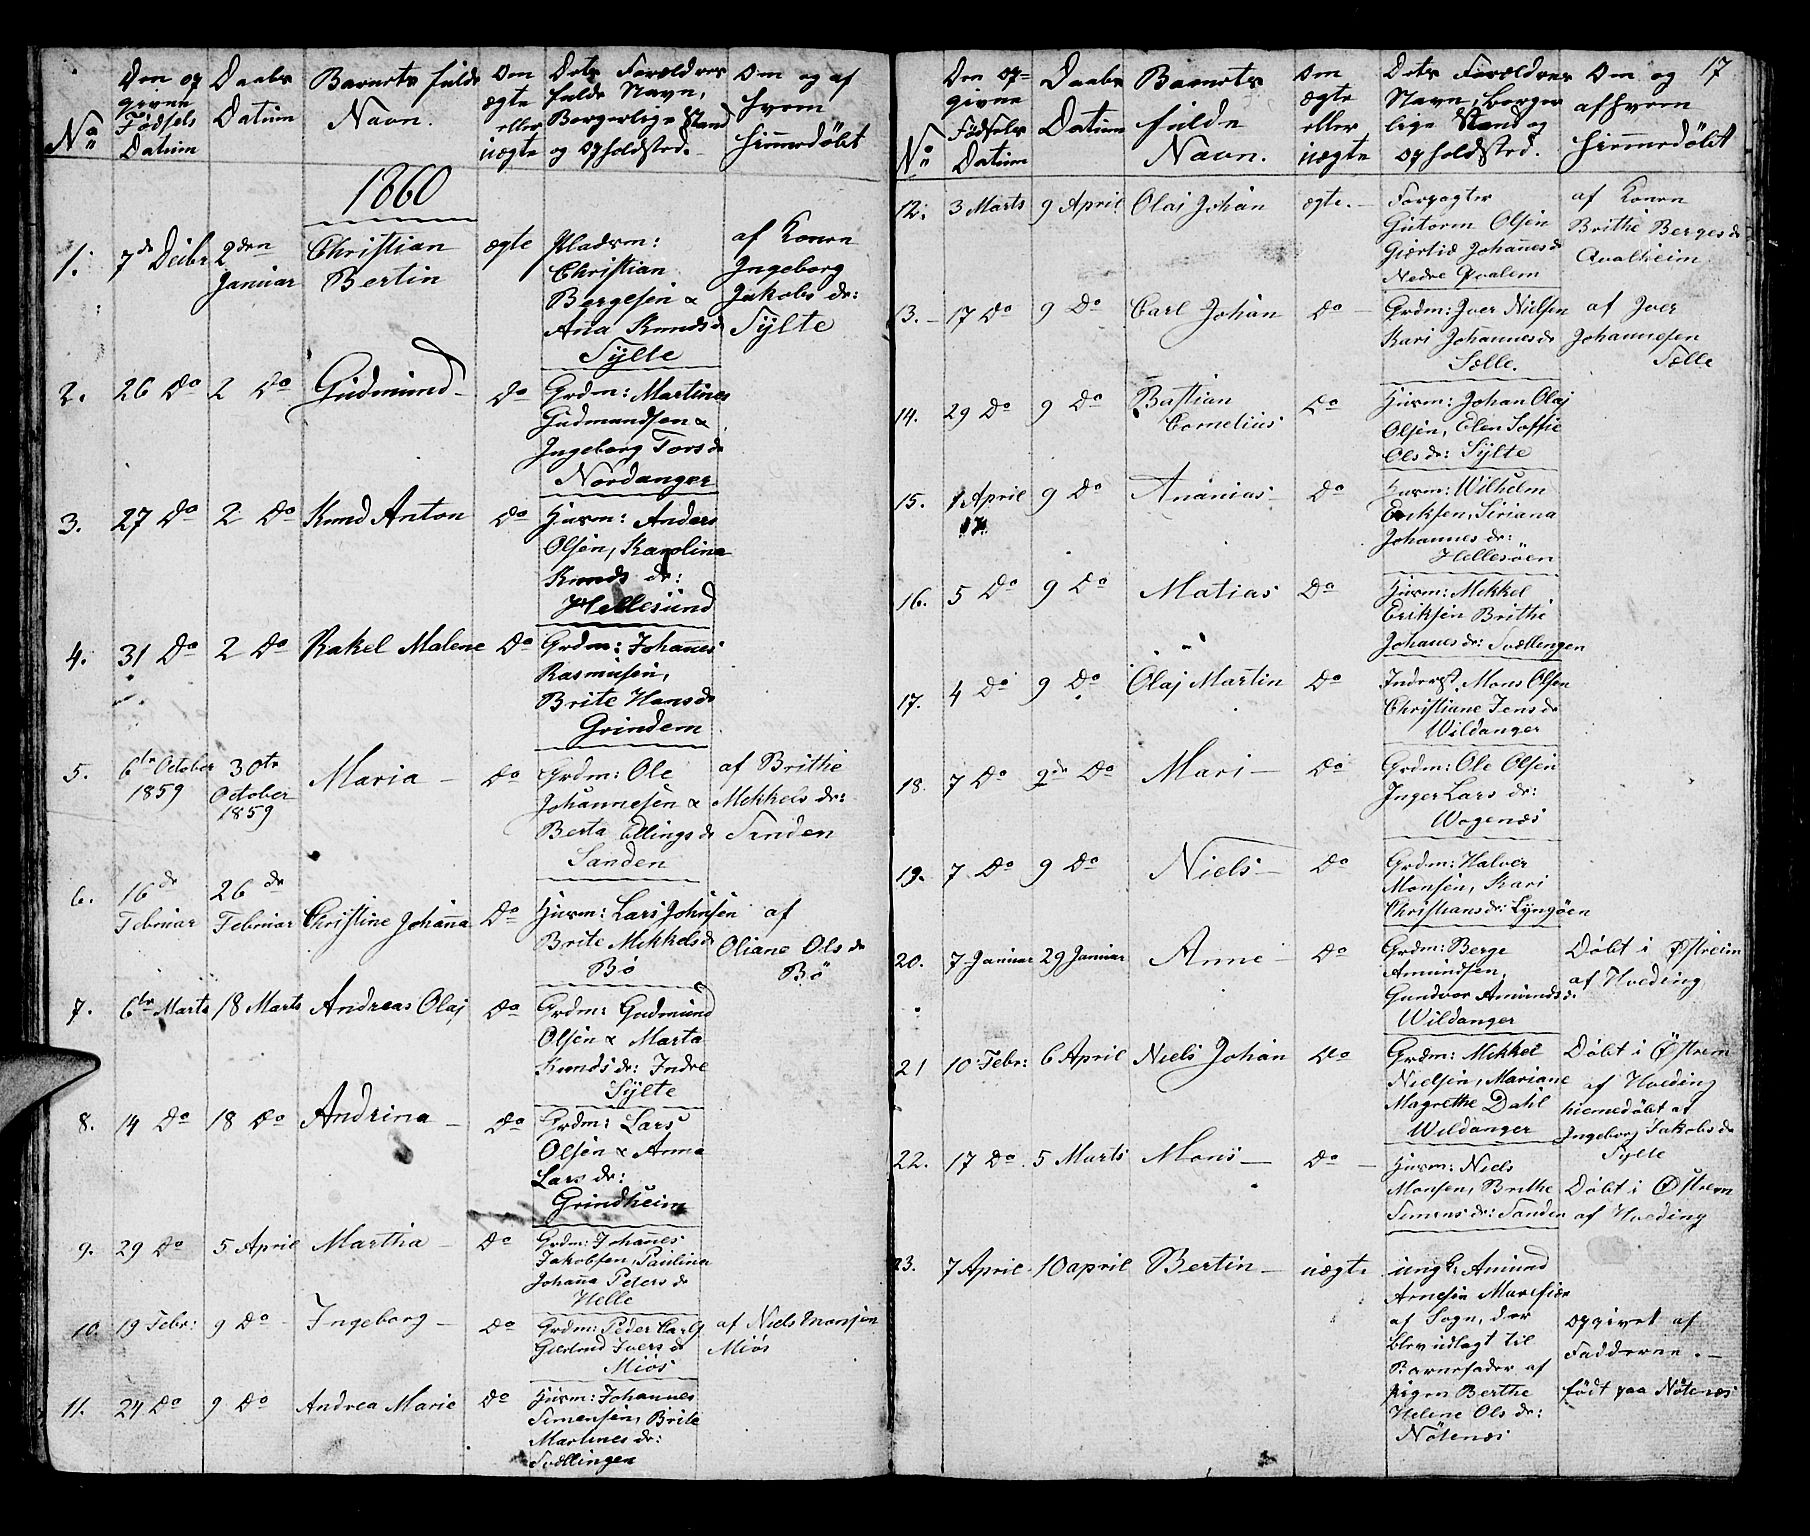 No
Den op
givne
Fødsels
Datum
Daabs
Datum
Barnets fulde
Navn.
Om
ægte
eller
uægte
Dets Forældres
fulde Navn,
Borgerlige Stand
og opholdsted.
Om og af
hvem
hjemmedøbt
1860
1.
7de Decbr
2den
Januar
Christian
Bertin
ægte
Pladsm:
Christian
Bergesen &
Anna Knudsd
Sylte
af Konen
Ingeborg
Jakobs dr:
Sylte
2.
26 Do
2 Do
Gudmund
Do
Grdm: Martines
Gudmundsen &
Ingeborg Torsdr
Nordanger
3.
27 Do
2 Do
Knud Anton
Do
Huusm: Anders
Olsen, Karolina
Knuds dr:
Hellesund
4.
31 Do
2 Do
Rakel Malene
Do
Grdm: Johannes
Rasmusen,
Brite Hansdr
Grindem
5.
6te October
1859
30te
October
1859
Maria
Do
Grdm: Ole
Johannesen &
Berta Ellingsdr
Sanden
af Brithe
Mekkels dr:
Sanden
6.
16de
Februar
26de
Februar
Christine Johanna
Do
Huusm: Lars Johnsen
Brite Mekkelsdr
Bö
af
Oliane Ols dr
Bö
7.
6te Marts
18 Marts
Andreas Olaj
Do
Grdm: Gudmund
Olsen & Marta
Knuds dr: Indre
Sylte
8.
14 Do
18 Do
Andrina
Do
Grdm: Lars
Olsen & Anna
Lars dr:
Grindheim
9.
29 Do
5 April
Martha
Do
Grdm: Johannes
Jakobsen, Paulina
Johana Peters dr
Helle
10.
19 Febr:
9 Do
Ingeborg
Do
Grdm: Peder Carls
Gierland Ivers dr
Miös
af Niels Monsen
Miös
11.
24 Do
9 Do
Andrea Marie
Do
Huusm: Johannes
Simensen, Brite
Martines dr:
Sædlingen
17
No
Den op-
givne
Fødsels
Datum
Daabs
Datum
Barnets
fulde
Navn.
Om
ægte
eller
uægte
Dets Forældres
Navn, borger
lige Stand og
opholdsted.
Om og
af hvem
hjemmedöbt
12.
3 Marts
9 April
Olai Johan
ægte.
Forpagter
Gutorm Olsen
Giertie Johannesdr
Nedre Qvalem
af Konen
Brithe Bergesdr
Qvalheim
13.
17 Do
9 Do
Carl Johan
Do
Grdm: Iver Nielsen
Kari Johannesdr
Sælle.
af Iver
Johannesen
Sælle
14.
29 Do
9 Do
Bastian
Cornelius
Do
Huusm: Johan Olaj
Olsen, Elen Soffie
Ols dr: Sylte
15.
1 April
17.
9 Do
Ananias
Do
Huusm: Wilhelm
Eriksen, Siriana
Johannes dr:
Hellesöen
16.
5 Do
9 Do
Matias
Do
Huusm: Mekkel
Eriksen Brithe
Johanes dr: Svællingen
17.
4 Do
9 Do
Olaj Martin
Do
Inderst Mons Olsen
Christiane Jens dr
Wildanger
18.
7 Do
9de Do
Mari
Do
Grdm: Ole Olsen
Inger Lars dr:
Wogenæs
19.
7 Do
9 Do
Niels
Do
Grdm: Halvor
Monsen, Kari
Christians dr: Lyngöen
20.
7 Januar
29 Januar
Anne
Do
Grdm: Berge
Amundsen,
Gundvor Amunds dr
Wildanger
Döbt i Østreim
af Hveding
21
10 Febr:
6 April
Niels Johan
Do
Grdm: Mekkel
Nielsen, Mariane
Magrethe Dahl
Wildanger
Döbt i Østrem
af Hveding
hiemedöbt af
Ingeborg Jakobsdr
Sylte
22.
17 Do
5 Marts
Mons
Do
Huusm: Niels
Monsen, Brithe
Simens dr: Sanden
Döbt i Østrem
af Hveding
23.
7 April
10 april
Bertin
uægte
ungk: Amund
Arnesen Maresien
af Sogn, der
blev udlagt til
Barnefader af
pigen Berthe
Helene Ols dr:
Nötenæs
opgivet af
Fadderne.
født paa Nötenæs